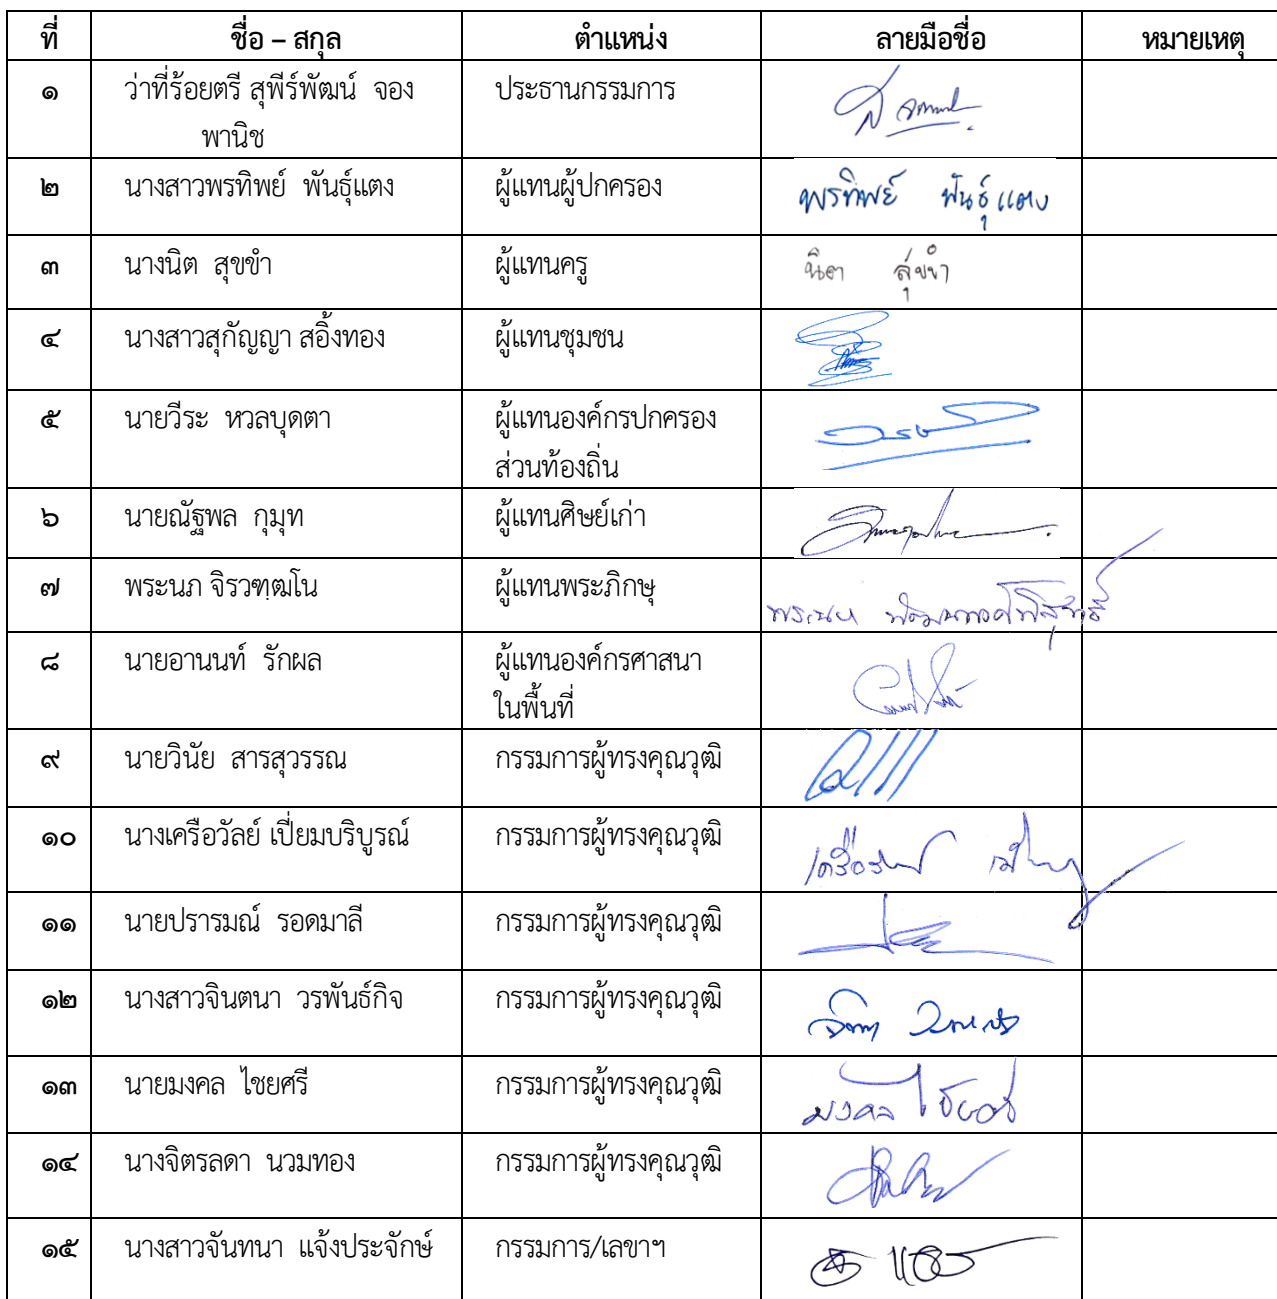 ที่ ชื่อ – สกุล ตำแหน่ง ลายมือชื่อ หมายเหตุ
๑ ว่าที่ร้อยตรี สุพีร์พัฒน์ จอง ประธานกรรมการ
พานิช
๒ นางสาวพรทิพย์ พันธุ์แตง ผู้แทนผู้ปกครอง พรทิพย์ พันธุ์แตง
๓ นางนิต สุขขำ ผู้แทนครู นิตา สุขขำ
๔ นางสาวสุกัญญา สอิ้งทอง ผู้แทนชุมชน
๕ นายวีระ หวลบุดตา ผู้แทนองค์กรปกครอง
ส่วนท้องถิ่น
๖ นายณัฐพล กุมุท ผู้แทนศิษย์เก่า
๗ พระนภ จิรวฑฺฒโน ผู้แทนพระภิกษุ
๘ นายอานนท์ รักผล ผู้แทนองค์กรศาสนา
ในพื้นที่
๙ นายวินัย สารสุวรรณ กรรมการผู้ทรงคุณวุฒิ
๑๐ นางเครือวัลย์ เปี่ยมบริบูรณ์ กรรมการผู้ทรงคุณวุฒิ
๑๑ นายปรารมณ์ รอดมาลี กรรมการผู้ทรงคุณวุฒิ
๑๒ นางสาวจินตนา วรพันธ์กิจ กรรมการผู้ทรงคุณวุฒิ
๑๓ นายมงคล ไชยศรี กรรมการผู้ทรงคุณวุฒิ มงคล ไชยศรี
๑๔ นางจิตรลดา นวมทอง กรรมการผู้ทรงคุณวุฒิ
๑๕ นางสาวจันทนา แจ้งประจักษ์ กรรมการ/เลขาฯ